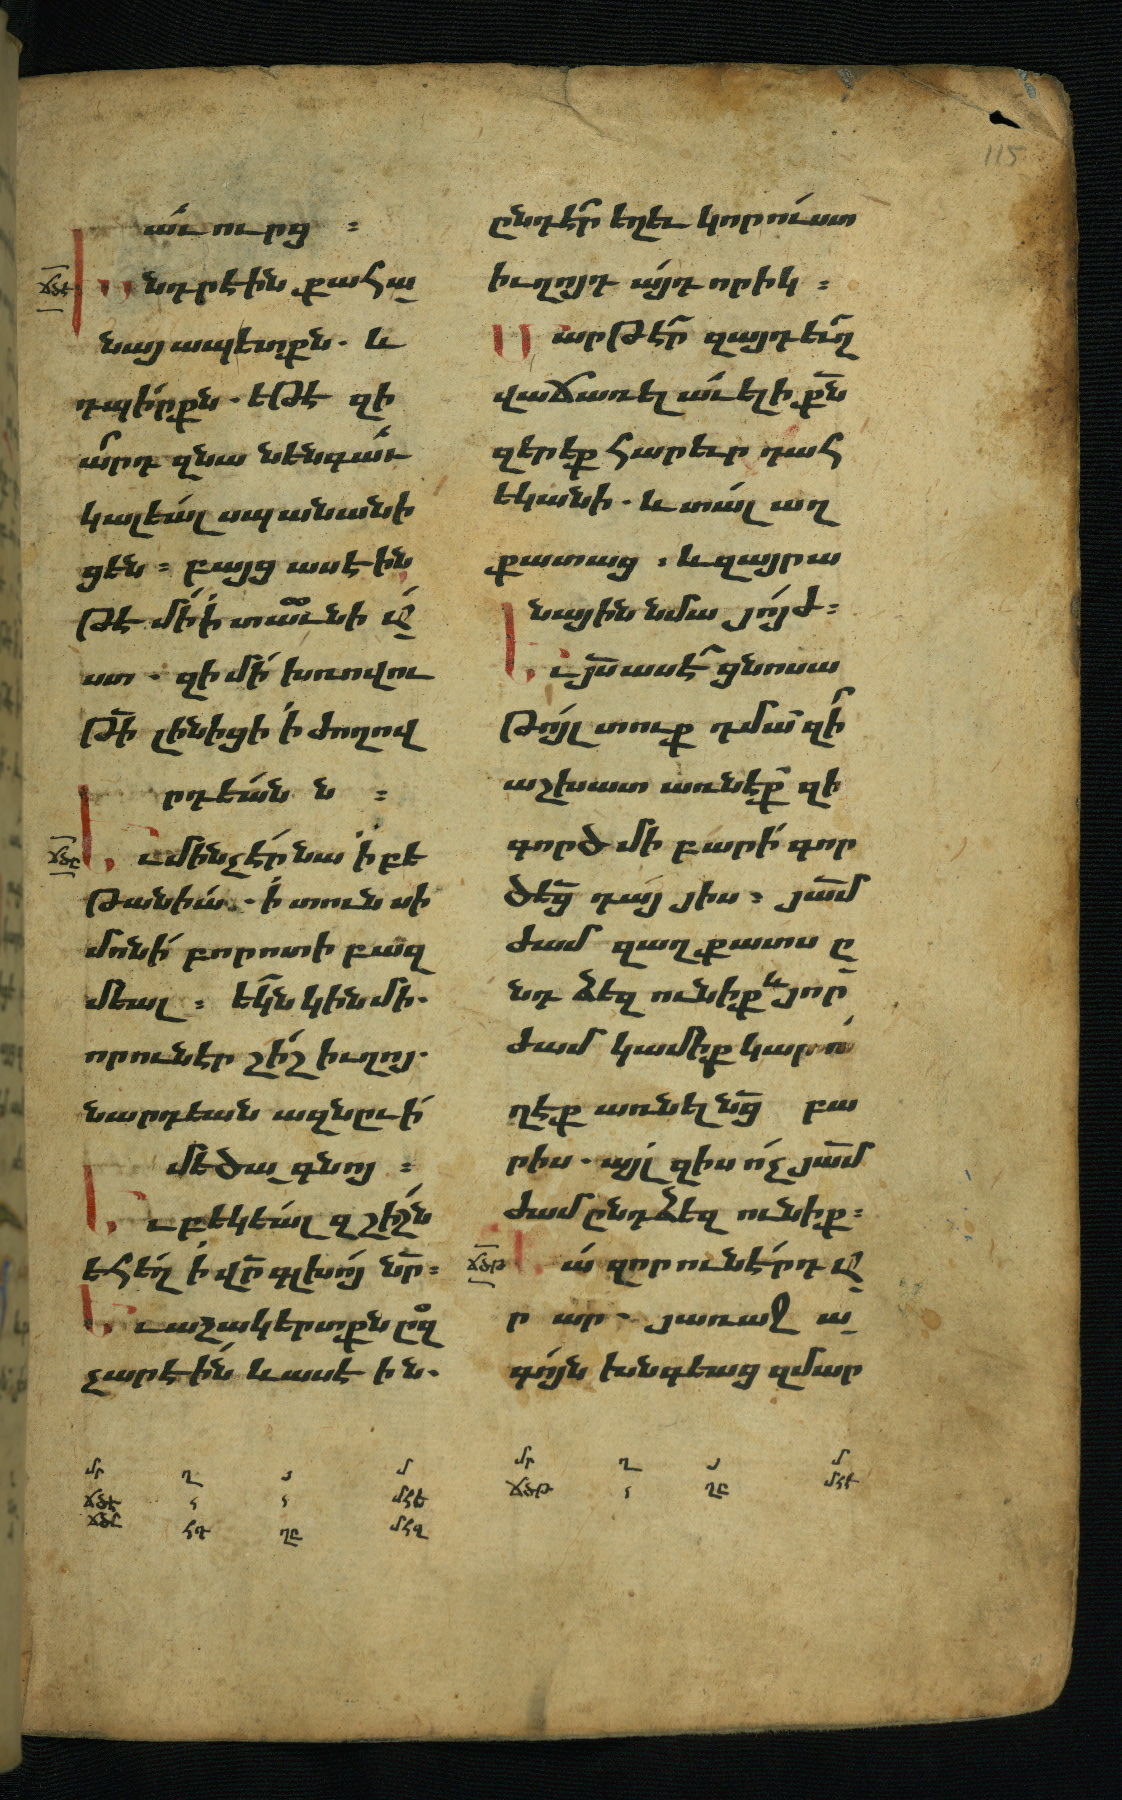 աւուրց ։
ճծէ խնդրէին քահա
նայապետքն. և
դպիրքն. եթէ զի
արդ զնա նենգաւ
կալեալ սպանանի
ցեն ։ բայց ասէին
թէ մի ի տաւնի աս
տ . զի մի խռովու
թի լինիցի ի ժողով
րդեանն ։
ճծը Եւ մինչէր նա ի բե
թանիա. ի տուն սի
մոնի բորոտի բազ
մեալ ։ եկն կին մի.
որ ունէր շիշ իւղոյ.
նարդեան ազնըւի
մեծագնոյ ։
Եւ բեկեալ զշիշն
եհեղ ի վր գլխոյ նր ։
Եւ աշակերտքն ըզ
չարէին և ասէին.
ընդէր եղեւ կորուստ
իւղոյդ այդորիկ ։
Մարթէր զայդ եւղ
վաճառել աւելի քն
զերեք հարեւր դահ
եկանի . և տալ աղ
քատաց . և զայրա
նային նմա յոյժ ։
Եւ յս ասէ ցնոսա
թոյլ տուք դմա զի
աշխատ առնէք զի
գործ մի բարի գոր
ծեց դայ յիս ։ յամ
ժամ զաղքատս ը
նդ ձեզ ունիք և յոր
ժամ կամիք կարո
ղէք առնել նց բա
րիս . այլ զիս ոչ յամ
ժամ ընդ ձեզ ունիք ։
ճծթ Նա զոր ունէրդ ա
ր ար . յառաջ ա
գոյն խնգեաց զմար
մր ղ յ մ
ճծէ մհե
ճծը հդ ղբ մհզ
մր ղ յ մ
ճծթ ղբ մհէ